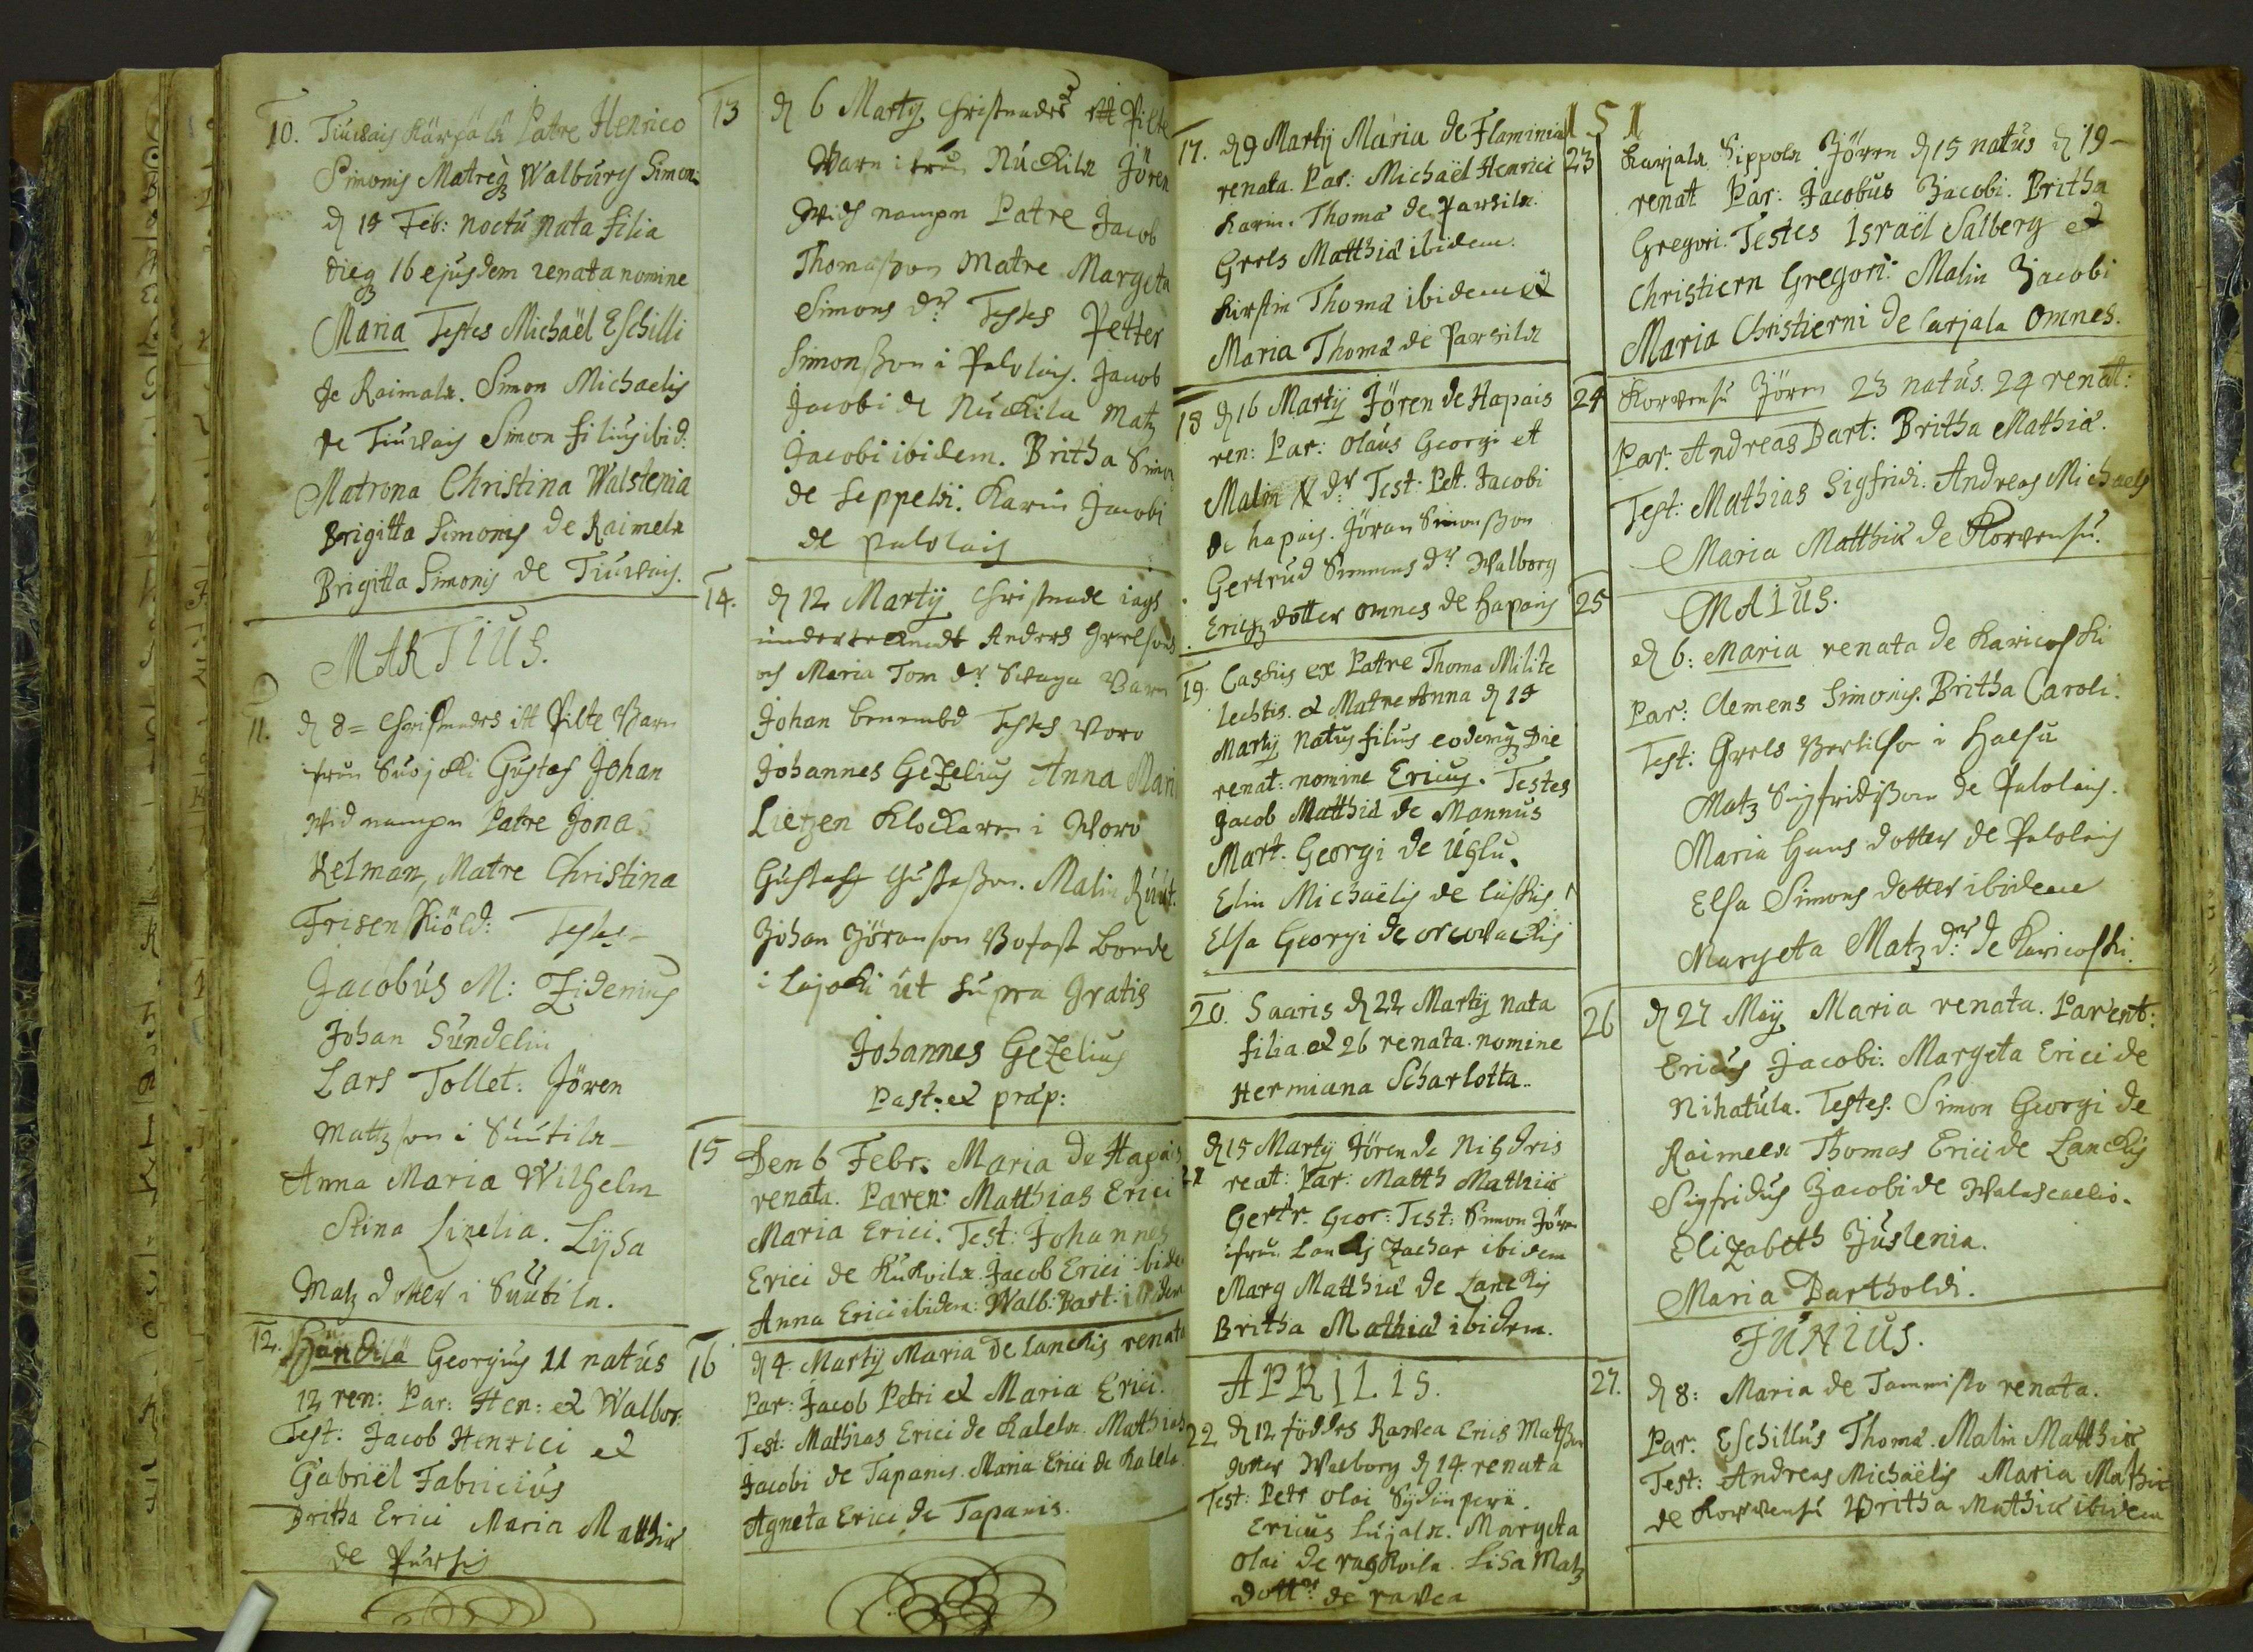 10. Tiuvais Kärpälä Patre Henrico
Simonis Matreq Walburg Simon:
d 14 Feb: noctu nata filia
dieq 16 ejusdem renata nomine
Maria Testes Michaël Eschilli
de Raimala. Simon Michaelis
de Tiuvais Simon filius ibid:
Matrona Christina Walstenia
Brigitta Simonis de Raimela
Brigitta Simonis de Tiuvais.
MARTIUS.
11. d 8 = Christnades itt Pilte Barn
ifrån Suojoki Gustaf Johan
wid nampn Patre Jonas
Kelman, Matre Christina
Frisenskiöld: Testes
Jacobus M: Zidenius
Johan Sundelin
Lars Tollet: Jören
Mattzson i Suutila
Anna Maria Wilhelm
Stina Linelia. Lysa
Matz dotter i Suutila.
12. Händilä Georgius 11 natus
12 ren: Par: Hen: et Walbor:
Test: Jacob Henrici et
Gabriël Fabricius
Britha Erici Maria Matthiæ
de Pursis
13 d 6 Martij Christnades ett Pilte
Barn ifrån Nuckila Jören
widh nampn Patre Jacob
Thomasson Matre Margeta
Simons dr Testes Petter
Simonsson i Palolais. Jacob
Jacobi de Nuckila Matz
Jacobi ibidem. Britha Simon
de Seppelä. Karin Jacobi
de palolais
14. d 12 Martij Christnade iagh
undertecknadt Anders Grelsons
och Maria Tom dr Barn
Johan benembd Testes Voro
Johannes Gezelius Anna Mari
Lietzen Klockaren i Woro
Gustaff Gustafson. Malin
Johan Göranson Bofast Bonde
i Lajoki ut supra Gratis
Johannes Gezelius
Past: et præp:
15 Den 6 Febr: Maria de Hapais
renata. Paren: Matthias Erici
Maria Erici. Test: Johannes
Erici de Kukoila. Jacob Erici ibide
Anna Erici ibidem: Walb: Bart: ibidem
16 d 4. Martij Maria de Lanckis renata
Par: Jacob Petri et Maria Erici.
Test: Mathias Erici de Kalela. Mathias
Jacobi de Tapanis. Maria Erici de Kalela.
Agneta Erici de Tapanis.
151
17. d 9 Martij Maria de Flaminia
renata. Par: Michaël Henrici
Karin. Thomæ de Parsila.
Grels Matthiæ ibidem.
Kirstin Thomæ ibidem et
Maria Thomæ de Parsila
18 d 16 Martij Jören de Hapais
ren: Par: Olaus Georgi et
Malin N dr Test: Pet. Jacobi
de hapais. Jöran Simonsson
Gertrud Simons dr Walborg
Erichz dotter omnes de Hapais
19. Caskis ex Patre Thoma Milite
Lechtis. et Matre Anna d 14
Martij natus filius eodemq die
renat: nomine Ericus. Testes
Jacob Matthiæ de Mannus
Mart. Georgi de Uglu.
Elin Michaëlis de Caskis
Elsa Georgi de
20. Saaris d 22 Martij nata
filia et 26 renata. nomine
Hermiana Scharlotta..
21 d 15 Martij Jören de Nihdris
reat: Par: Matth Mathiæ
Gertr. Geor: Test: Simon Jören
ifrån Lanckis Zachar ibidem
Marg Matthiæ de Lanckis
Britha Mathiæ ibidem.
APRILIS.
22 d 12 föddes Ravea Erics Matsson
dotter Walborg d 14. renata
Test: Petr Olai Sydänperä.
Ericus Lujala. Margeta
Olai de raskoila. Lisa Matz
dottr de ravea
23 Karjala Sippola Jören d 15 natus d 19
renat Par: Jacobus Jacobi. Britha
Gregori. Testes Israël Salberg et
Christiern Gregori: Malin Jacobi
Maria Christierni de Carjala Omnes.
24 Korvensu Jören 23 natus. 24 renat:
Par: Andreas Bart: Britha Mathiæ.
Test: Mathias Sigfridi. Andreas Michaels
Maria Matthiæ de Korvensu.
25 MAIUS.
d 6: Maria renata de Karicoski
Par: Clemens Simonis. Britha Caroli.
Test: Grels Bertilson i Halsu
Matz Sigfridsson de Palolais.
Maria Hans dotter de Palolais
Elsa Simons dotter ibidem
Margeta Matz dr de Karicoski.
26 d 27 Maij Maria renata. Parent:
Ericus Jacobi: Margeta Erici de
Nihatula. Testes. Simon Georgi de
Raimela Thomas Erici de Lanckis
Sigfridus Jacobi de Walascallio.
Elizabeth Juslenia.
Maria Bartholdi.
JUNIUS.
27. d 8: Maria de Tammisto renata.
Par: Eschillus Thomæ. Malin Matthiæ
Test: Andreas Michaëlis Maria Mathiæ
de Korvensu Britha Mathiæ ibidem